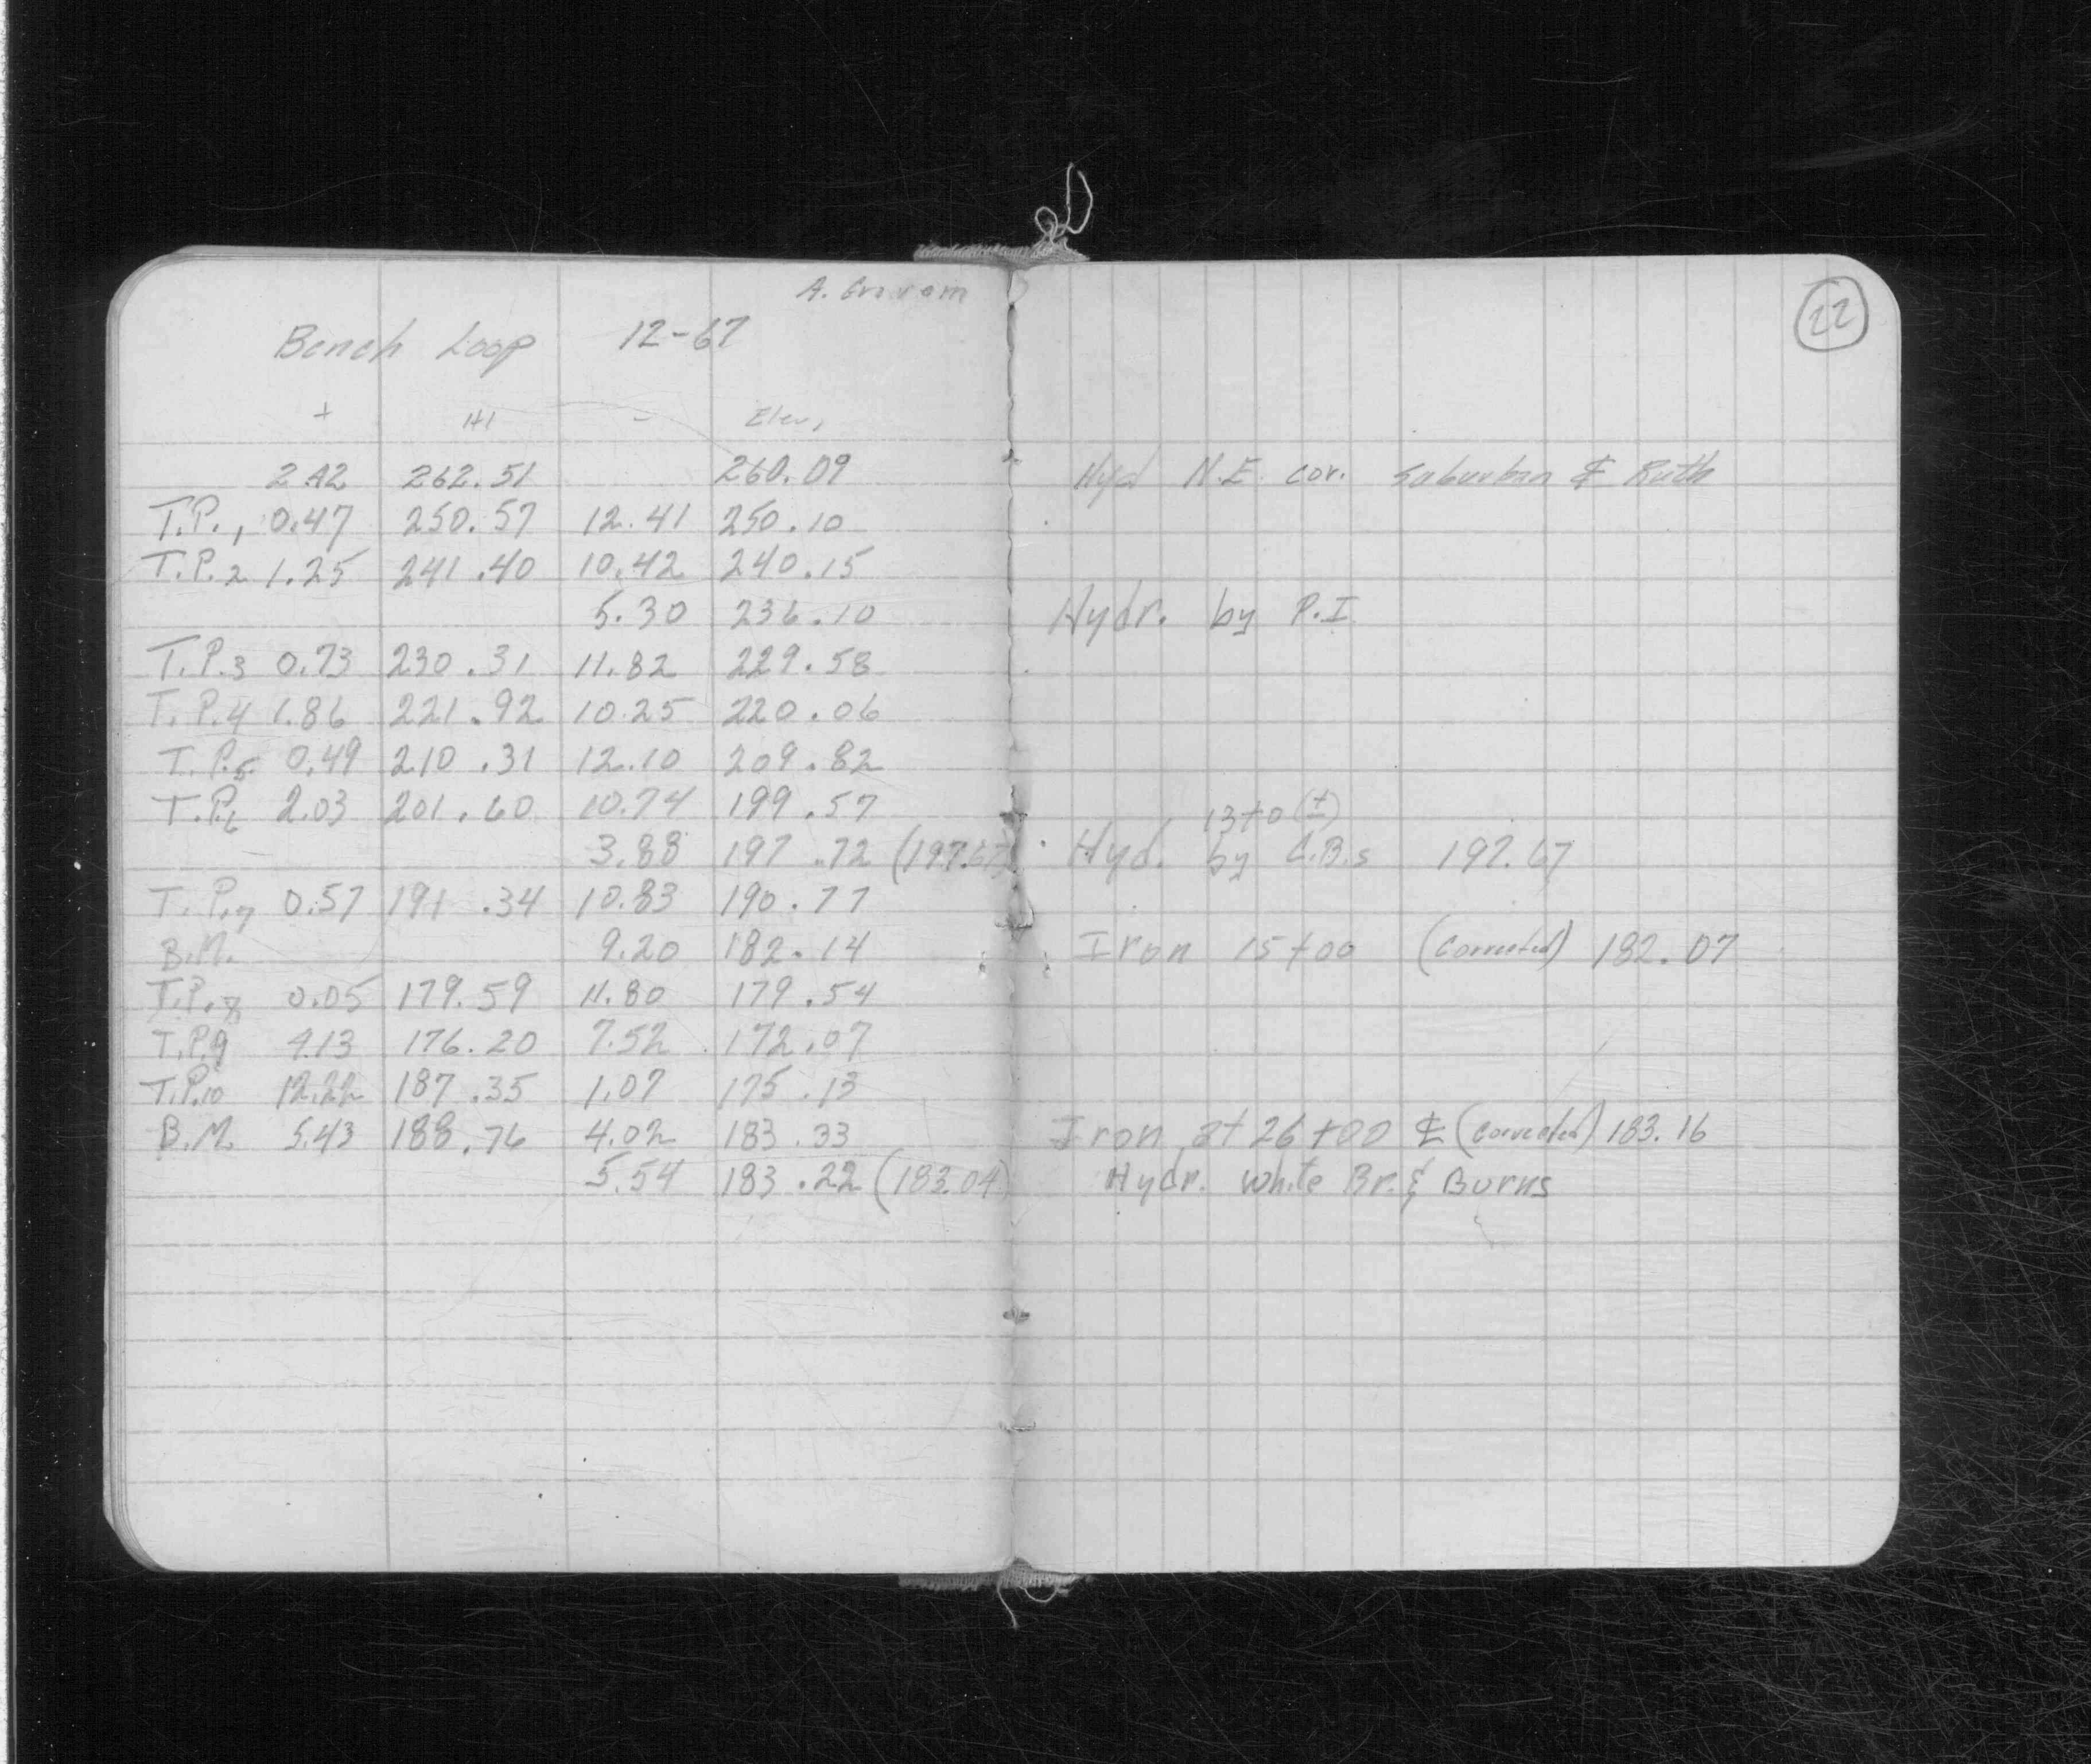 A. Graham
22
Bench Loop 12-67
+ HI - Elev,
2.42 262.51 260.09 Hyd N.E. cor. Suburban & Ruth
T.P.1 0.47 250.57 12.41 250.10
T.P.2 1.25 241.40 10.42 240.15
5.30 236.10 Hydr. by P.I.
T.P.3 0.73 230.31 11.82 229.58
T.P.4 1.86 221.92 10.25 220.06
T.P.5 0.49 210.31 12.10 209.82
T.P.6 2.03 201.60 10.74 199.57
13+0 (±)
3.88 197.72 (197.67) Hyd. by C.B.s 197.67
T.P.7 0.57 191.34 10.83 190.77
B.M. 9.20 182.14 Iron 15+00 (Corrected) 182.07
T.P.8 0.05 179.59 11.80 179.54
T.P.9 4.13 176.20 7.52 172.07
T.P.10 12.22 187.35 1.07 175.13
B.M. 5.43 188.76 4.02 183.33 Iron at 26+00 ℄ (Corrected) 183.16
5.54 183.22 (183.04) Hydr. White Br. & Burns